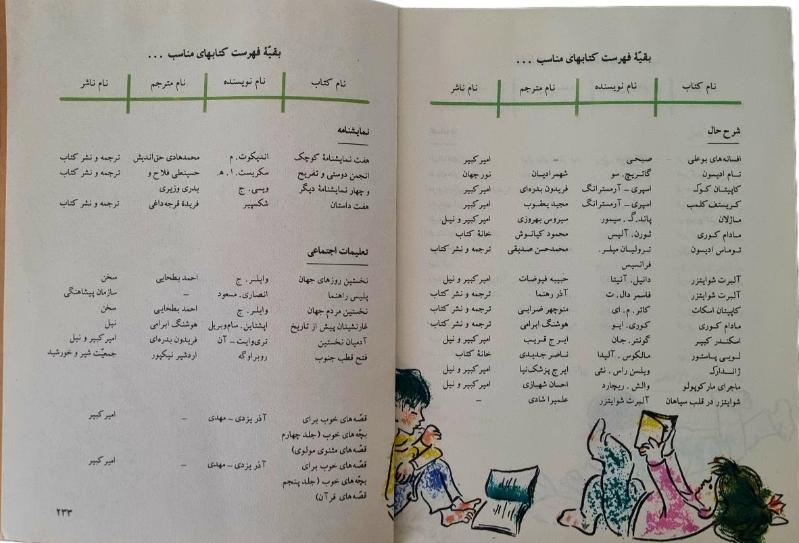 بقیّهٔ فهرست کتابهای مناسب ...
نام کتاب نام نویسنده نام مترجم نام ناشر
شرح حال
افسانه‌های بوعلی صبحی – امیر کبیر
تام ادیسون گاتریج. سو شهمرادیان نور جهان
کاپیتان کوک اسپری – آرمسترانگ فریدون بدره‌ای امیر کبیر
کریستف کلمب اسپری – آرمسترانگ مجید یعقوب امیر کبیر
ماژلان پاند. گ. سیمور سیروس بهروزی امیر کبیر و نیل
مادام کوری ثورن. آلیس محمود کیانوش خانهٔ کتاب
توماس ادیسون ترولیان میلر. محمدحسن صدیقی ترجمه و نشر کتاب
فرانسیس
آلبرت شوایتزر دانیل. آنیتا حبیبه فیوضات امیر کبیر و نیل
آلبرت شوایتزر فاسمر دال. ت آذر رهنما ترجمه و نشر کتاب
کاپیتان اسکات کاتر. م. ای منوچهر ضرابی ترجمه و نشر کتاب
مادام کوری کوری. ایو هوشنگ ابرامی ترجمه و نشر کتاب
اسکندر کبیر گونتر. جان ایرج قریب امیر کبیر و نیل
لویی پاستور مالکوس. آلیدا ناصر جدیدی خانهٔ کتاب
ژاندارک ویلسن راس. نئی ایرج پزشک‌نیا امیر کبیر و نیل
ماجرای مارکوپولو والش. ریچارد احسان شهبازی امیر کبیر و نیل
شوایتزر در قلب سیاهان آلبرت شوایتزر علمیرا شادی –
بقیّهٔ فهرست کتابهای مناسب ...
نام کتاب نام نویسنده نام مترجم نام ناشر
نمایشنامه
هفت نمایشنامهٔ کوچک اندیکوت. م محمدهادی حق‌اندیش ترجمه و نشر کتاب
انجمن دوستی و تفریح سکریست. ا. ه. حسینعلی فلاح و ترجمه و نشر کتاب
و چهار نمایشنامهٔ دیگر ویسی. ج بدری وزیری
هفت داستان شکسپیر فریدهٔ قرجه‌داغی ترجمه و نشر کتاب
تعلیمات اجتماعی
نخستین روزهای جهان وایلر. ج احمد بطحایی سخن
پلیس راهنما انصاری. مسعود – سازمان پیشاهنگی
نخستین مردم جهان وایلر. ج احمد بطحایی سخن
غارنشینان پیش از تاریخ اپشتاین. سام‌و‌بریل هوشنگ ابرامی نیل
آدمیان نخستین تری‌وایت – آن فریدون بدره‌ای امیر کبیر و نیل
فتح قطب جنوب روبراوگه اردشیر نیکپور جمعیّت شیر و خورشید
قصّه‌های خوب برای آذر یزدی – مهدی – امیر کبیر
بچّه‌های خوب (جلد چهارم
قصّه‌های مثنوی مولوی)
قصّه‌های خوب برای آذر یزدی – مهدی – امیر کبیر
بچّه‌های خوب (جلد پنجم
قصّه‌های قرآن)
۲۳۳